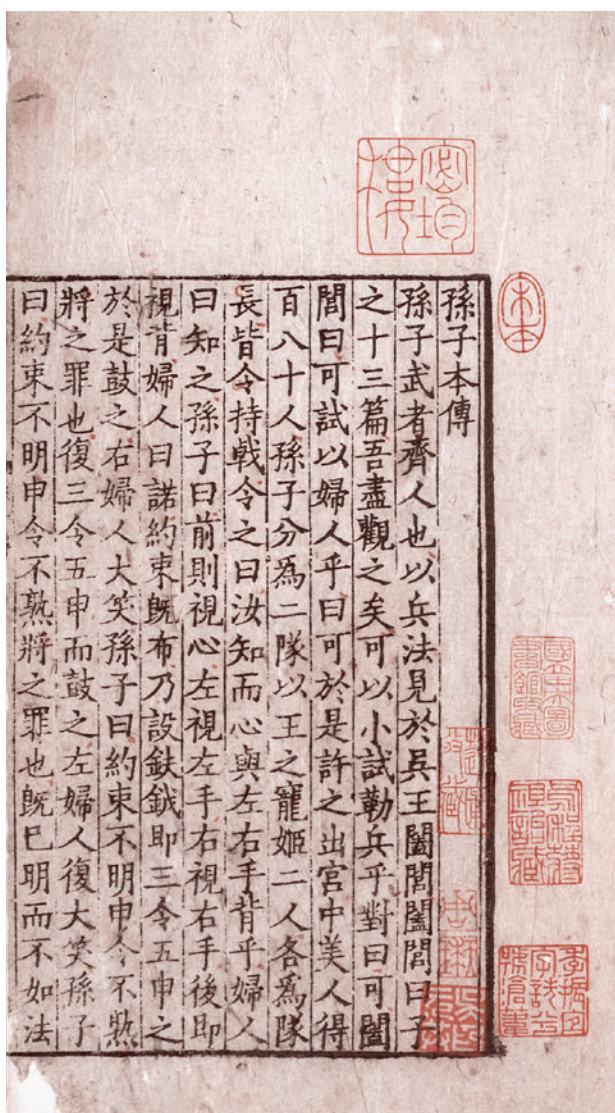 孫子本傳
孫子武者齊人也以兵法見於吳王闔閭闔閭曰子
之十三篇吾盡觀之矣可以小試勒兵乎對曰可闔
閭曰可試以婦人乎曰可於是許之出宮中美人得
百八十人孫子分爲二隊以王之寵姬二人各爲隊
長皆令持戟令之曰汝知而心與左右手背乎婦人
曰知之孫子曰前則視心左視左手右視右手後即
視背婦人曰諾約束既布乃設鈇鉞即三令五申之
於是鼓之右婦人大笑孫子曰約束不明申令不熟
將之罪也復三令五申而鼓之左婦人復大笑孫子
曰約束不明申令不熟將之罪也既已明而不如法
木本